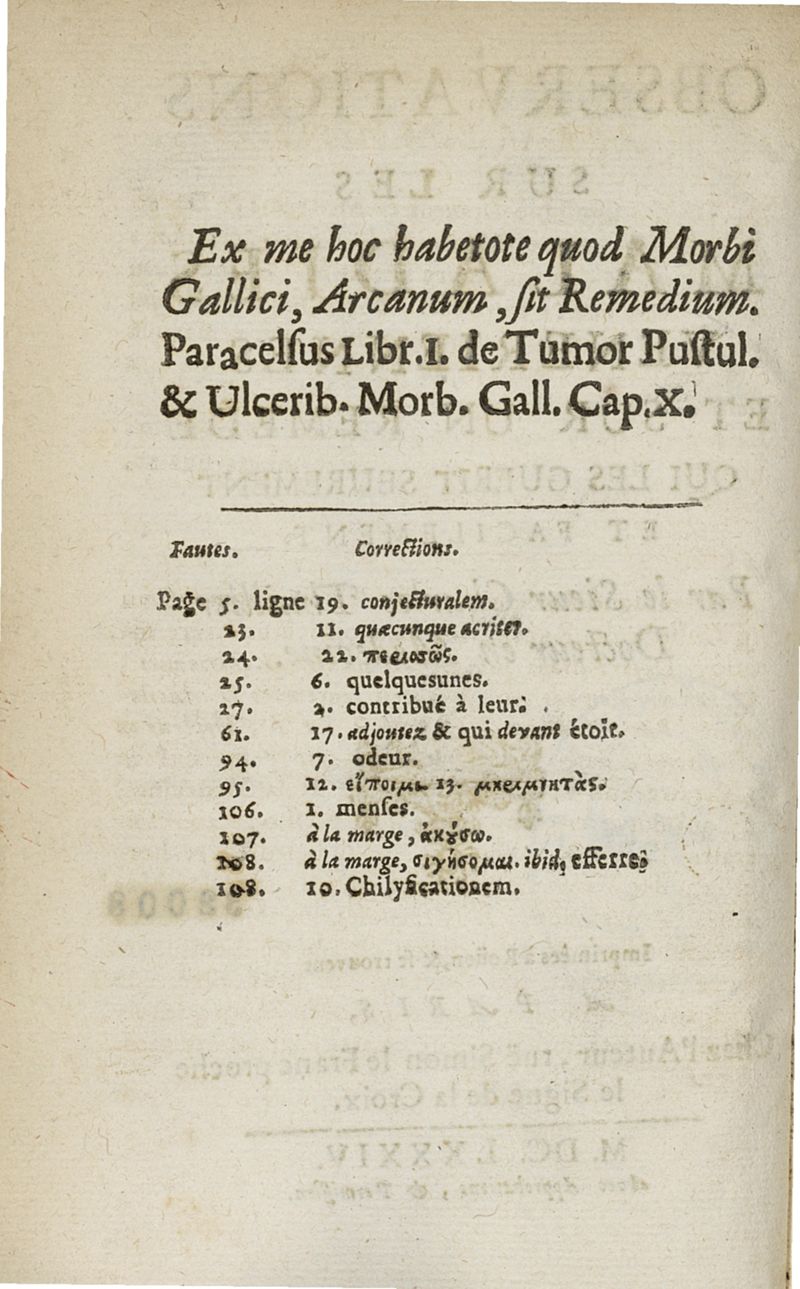 Ex me hoc habetote quod Morbi
Gallici, Arcanum, ſit Remedium.
Paracelſus Libr. I. de Tumor Puſtul.
& Ulcerib. Morb. Gall. Cap. X.
Fautes. Corrections.
Page 5. ligne 19. conjecturalem.
23. 11. quæcunque acriter.
24. 22.
25. 6. quelquesunes.
27. 2. contribué à leur.
61. 17. adjoutez & qui devant étoit.
94. 7. odeur.
95. 12. 13.
106. 1. menſes.
107. à la marge, ἀκȣ́σω.
108. à la marge, σιγήσομαι. ibid.
108. 10. Chilyficationem.